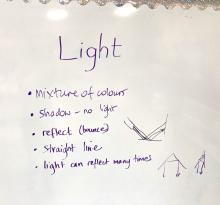 Light
• mixture of colours
• shadow - no light
• reflect (bounced)
• straight line
• light can reflect many times